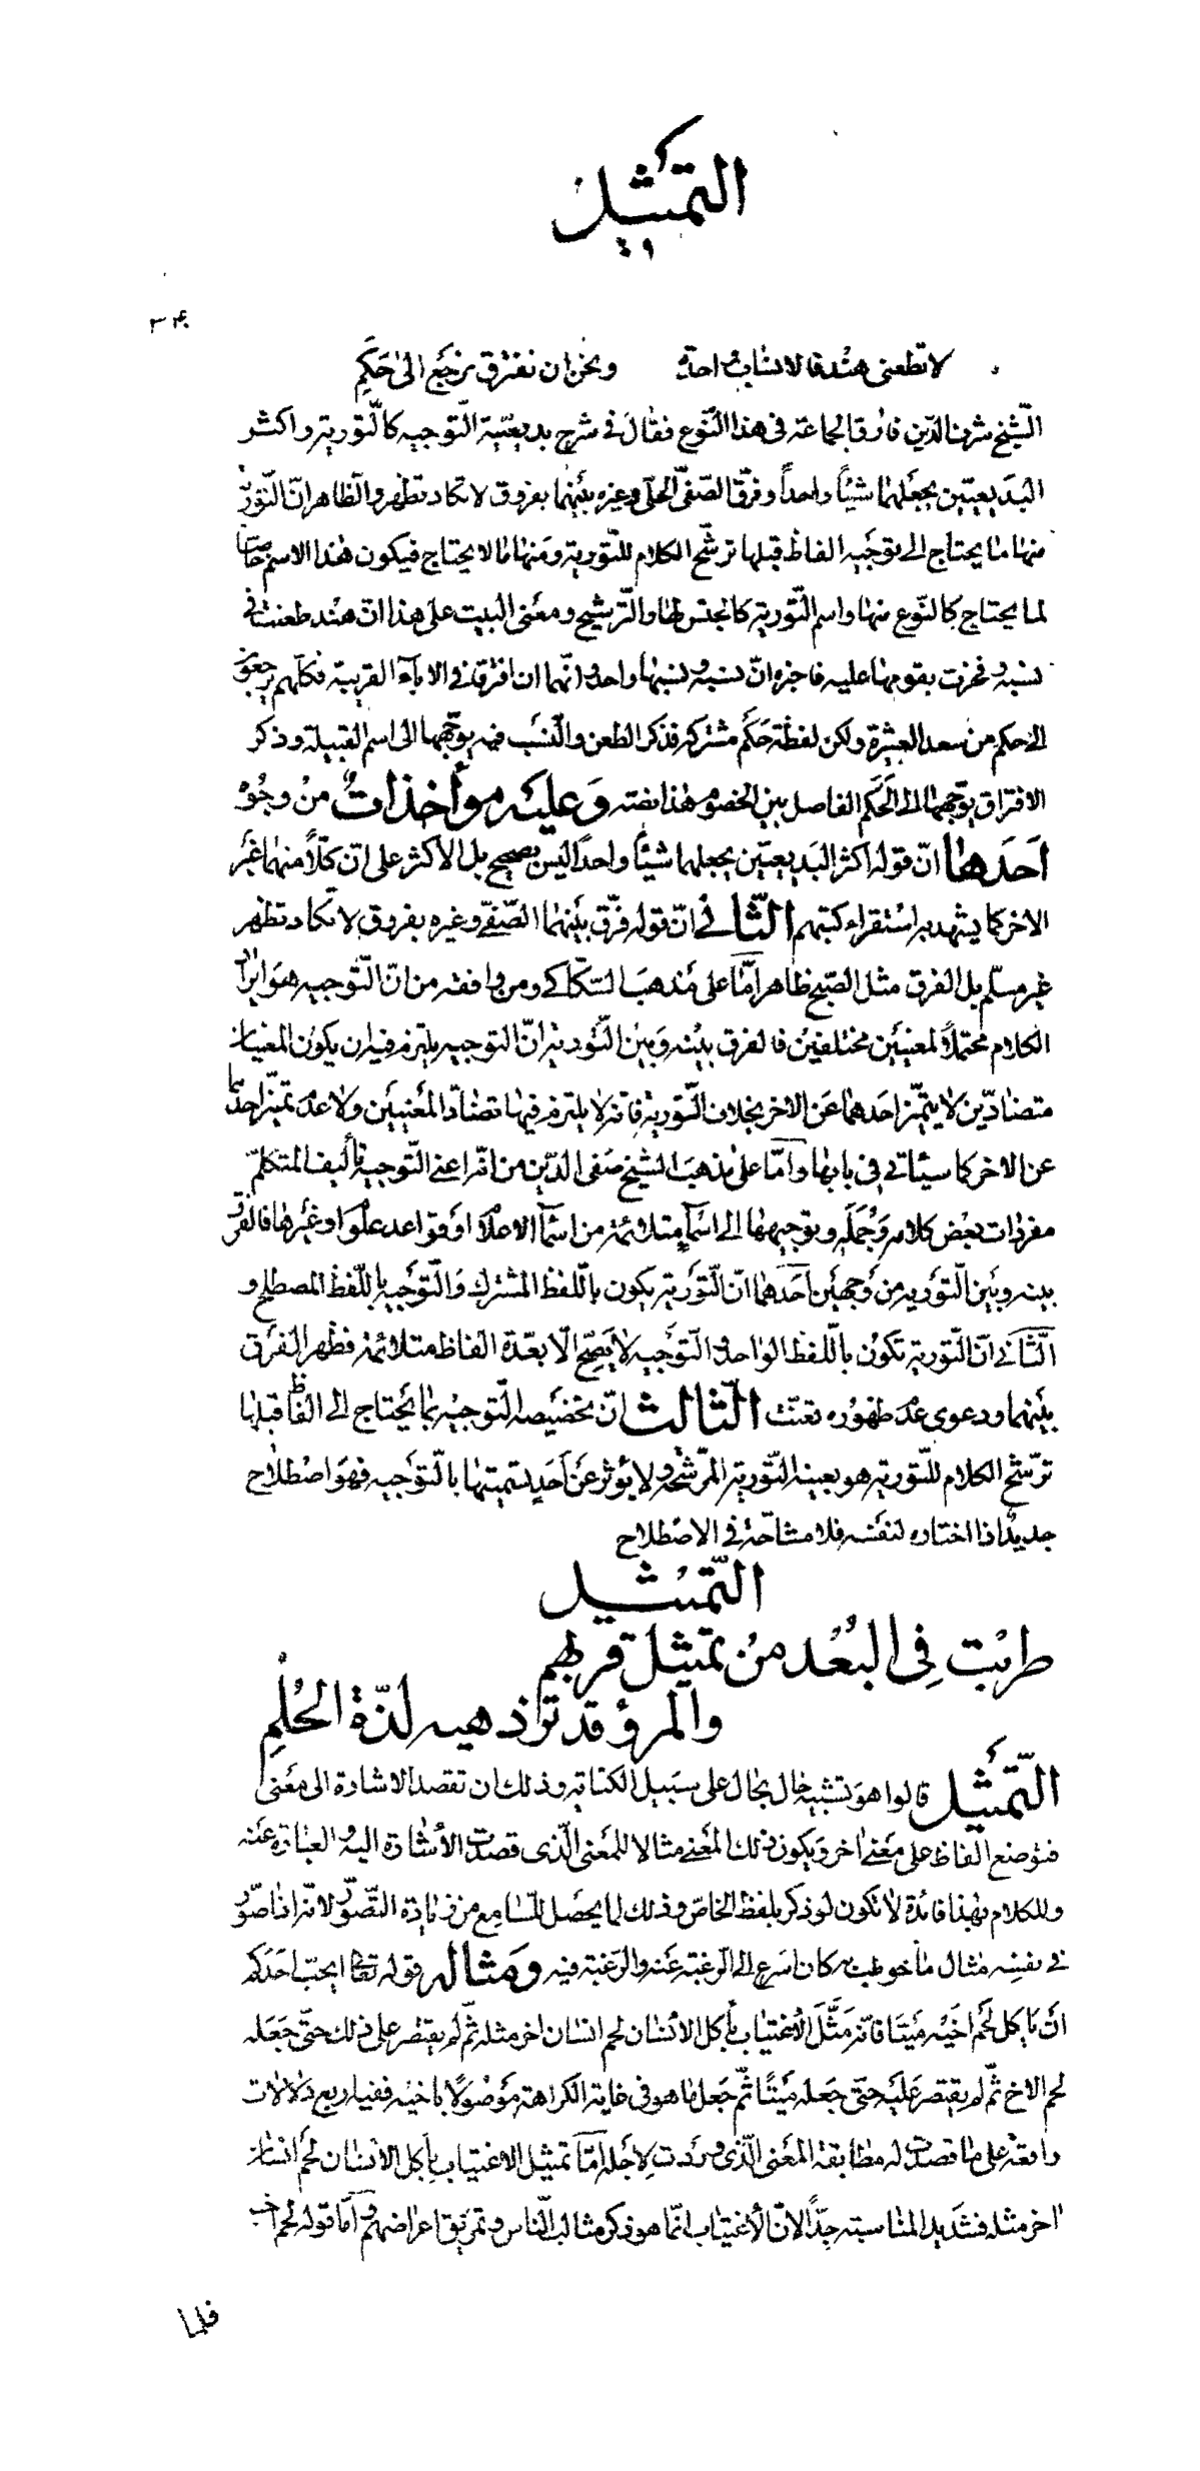 التمثيل
لا تطعنى هند فالانساب واحدة ونحن ان نفترق نرجع الى حكم
الشيخ شرف الدين فارق الجماعة فى هذا النوع فقال فى شرح بديعيته التوجيه كالتورية واكثر
البديعيين يجعلهما شيئا واحدا وفرق الصفى الحلى وغيره بينهما بفروق لا تكاد تظهر والظاهر ان التورية
منها ما يحتاج الى توجيه الفاظ قبلها ترشح الكلام للتورية ومنها ما لا يحتاج فيكون هذا الاسم خاصا
لما يحتاج كالنوع منها واسم التورية كالجنس لها والترشيح ومعنى البيت على هذا ان هند طعنت فى
نسبه وفخرت بقومها عليه فاخبره ان نسبه ونسبها واحد وانهما ان افترقا فى الاباء القريبة فكلهم يرجعون
الى حكم من سعد العشيرة ولكن لفظة حكم مشتركة فذكر الطعن والنسب فيه يوجهها الى اسم القبيلة وذكر
الافتراق يوجهها الى الحكم الفاصل بين الخصوم هذا نصه وعليه مؤاخذات من وجوه
احدها ان قوله اكثر البديعيين يجعلهما شيئا واحدا ليس بصحيح بل الاكثر على ان كلا منهما غير
الاخر كما يشهد به استقراء كتبهم الثانى ان قوله فرق بينهما الصفى وغيره بفروق لا تكاد تظهر
غير مسلم بل الفرق مثل الصبح ظاهر اما على مذهب السكاكى ومن وافقه من ان التوجيه هو ايراد
الكلام محتملا لمعنيين مختلفين فالفرق بينه وبين التورية ان التوجيه يلتزم فيه ان يكون المعنيان
متضادين لا يتميز احدهما عن الاخر بخلاف التورية فانه لا يلتزم فيها تضاد المعنيين ولا عدم تميز احدهما
عن الاخر كما سيئاتى فى بابها واما على مذهب الشيخ صفى الدين من انه اعنى التوجيه تأليف المتكلم
مفردات بعض كلامه وجمله وتوجيهها الى اسماء متلائمة من اسماء الاعلام او قواعد علوم او غيرها فالفرق
بينه وبين التورية من وجهين احدهما ان التورية يكون باللفظ المشترك والتوجيه باللفظ المصطلح و
الثانى ان التورية تكون باللفظ الواحد والتوجيه لا يصح الا بعدة الفاظ متلائمة فظهر الفرق
بينهما ودعوى عدم ظهوره تعنت الثالث ان تخصيصه التوجيه بما يحتاج الى الفاظ قبلها
ترشح الكلام للتورية هو بعينه التورية المرشحة ولا يؤثر عن احد تسميتها بالتوجيه فهو اصطلاح
جديد اذا اختاره لنفسه فلا مشاحة فى الاصطلاح
التمثيل
طربت فى البعد من تمثيل قربهم
والمرؤ قد تزدهيه لذة الحلم
التمثيل قالوا هو تشبيه حال بحال على سبيل الكناية وذلك ان تقصد الاشارة الى معنى
فتوضع الفاظ على معنى اخر ويكون ذلك المعنى مثالا للمعنى الذى قصدت الاشارة اليه والعبارة عنه
وللكلام بهذا فائدة لا تكون لو ذكر بلفظ الخاص وذلك لما يحصل للسامع من زيادة التصور لانه اذا صور
فى نفسه مثال ما خوطب به كان اسرع الى الرغبة عنه والرغبة فيه ومثاله قوله تعالى ايحب احدكم
ان ياكل لحم اخيه ميتا فانه مثل الاغتياب بأكل الانسان لحم انسان اخر مثله ثم لم يقتصر على ذلك حتى جعله
لحم الاخ ثم لم يقتصر عليه حتى جعله ميتا ثم جعل ما هو فى غاية الكراهة موصولا باخيه ففيه اربع دلالات
واقعة على ما قصدت له مطابقة المعنى الذى وردت لاجله اما تمثيل الاغتياب بأكل الانسان لحم انسان
اخر مثله فشديد المناسبة جدا لان الاغتياب انما هو ذكر مثالب الناس وتمزيق اعراضهم واما قوله لحم اخيه
فلما